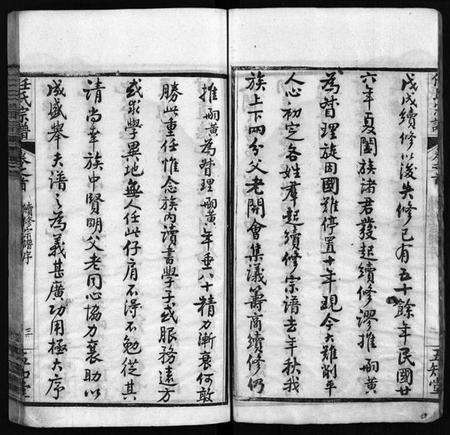 戊戌續修以後失修已有五十餘年民國廿
六年夏闔族諸君發起續修謬推雨黃
為督理旋因國難停置十年現今大難削平
人心初定各姓羣起續修宗譜去年秋我
族上下兩分父老開會集議籌商續修仍
推雨黃為督理雨黃年垂八十精力漸衰何敢
勝此重任惟念族內讀書學子或服務遠方
或求學異地無人任此仔肩不得不勉從其
請尚幸族中賢明父老同心協力襄助以
成盛舉夫譜之為義甚廣功用極大序
任氏宗譜
卷之首
續修宗譜序
三